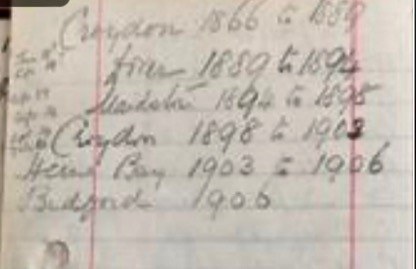 Croydon 1866 to 1889
1889 to 1894
Maidstone 1894 to 1898
Croydon 1898 to 1903
Herne Bay 1903 to 1906
Bedford 1906